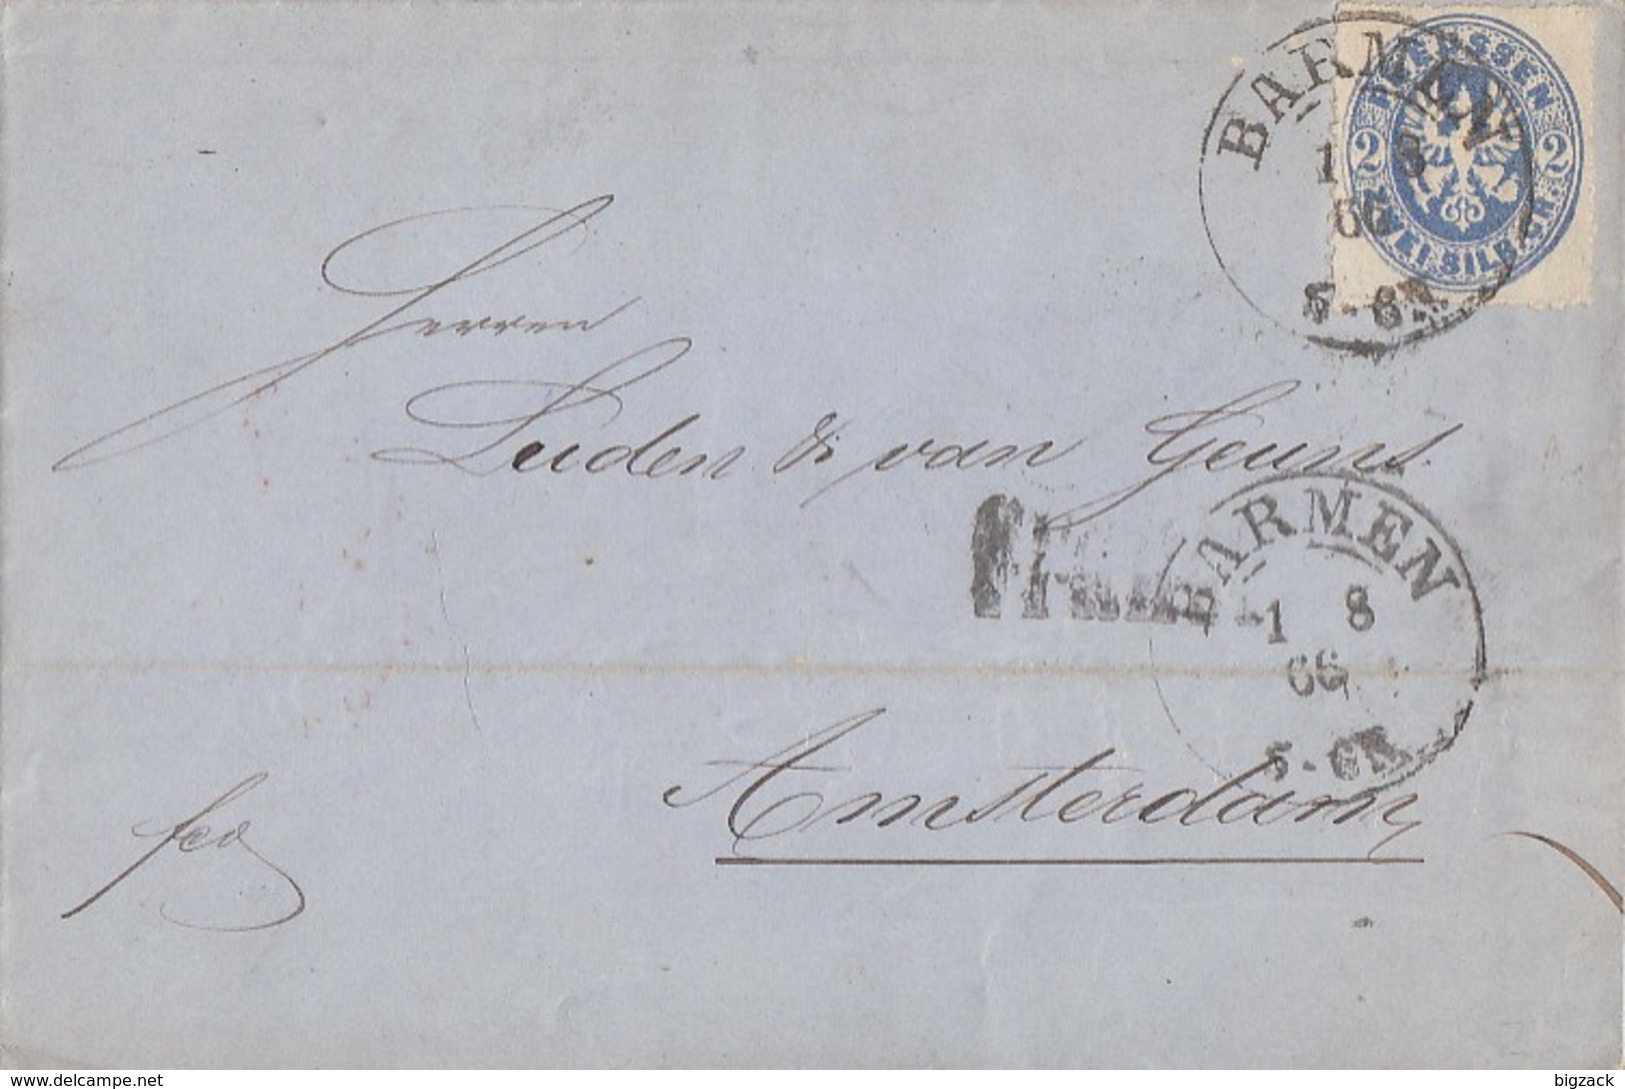 BARMEN
1 8
66
5-6N
PREUSSEN
2 2
ZWEI SILB. GR.
Herren
Luden & van Geuns.
franco
BARMEN
1 8
66
5-6N
Amsterdam
fco
www.delcampe.net
bigzack